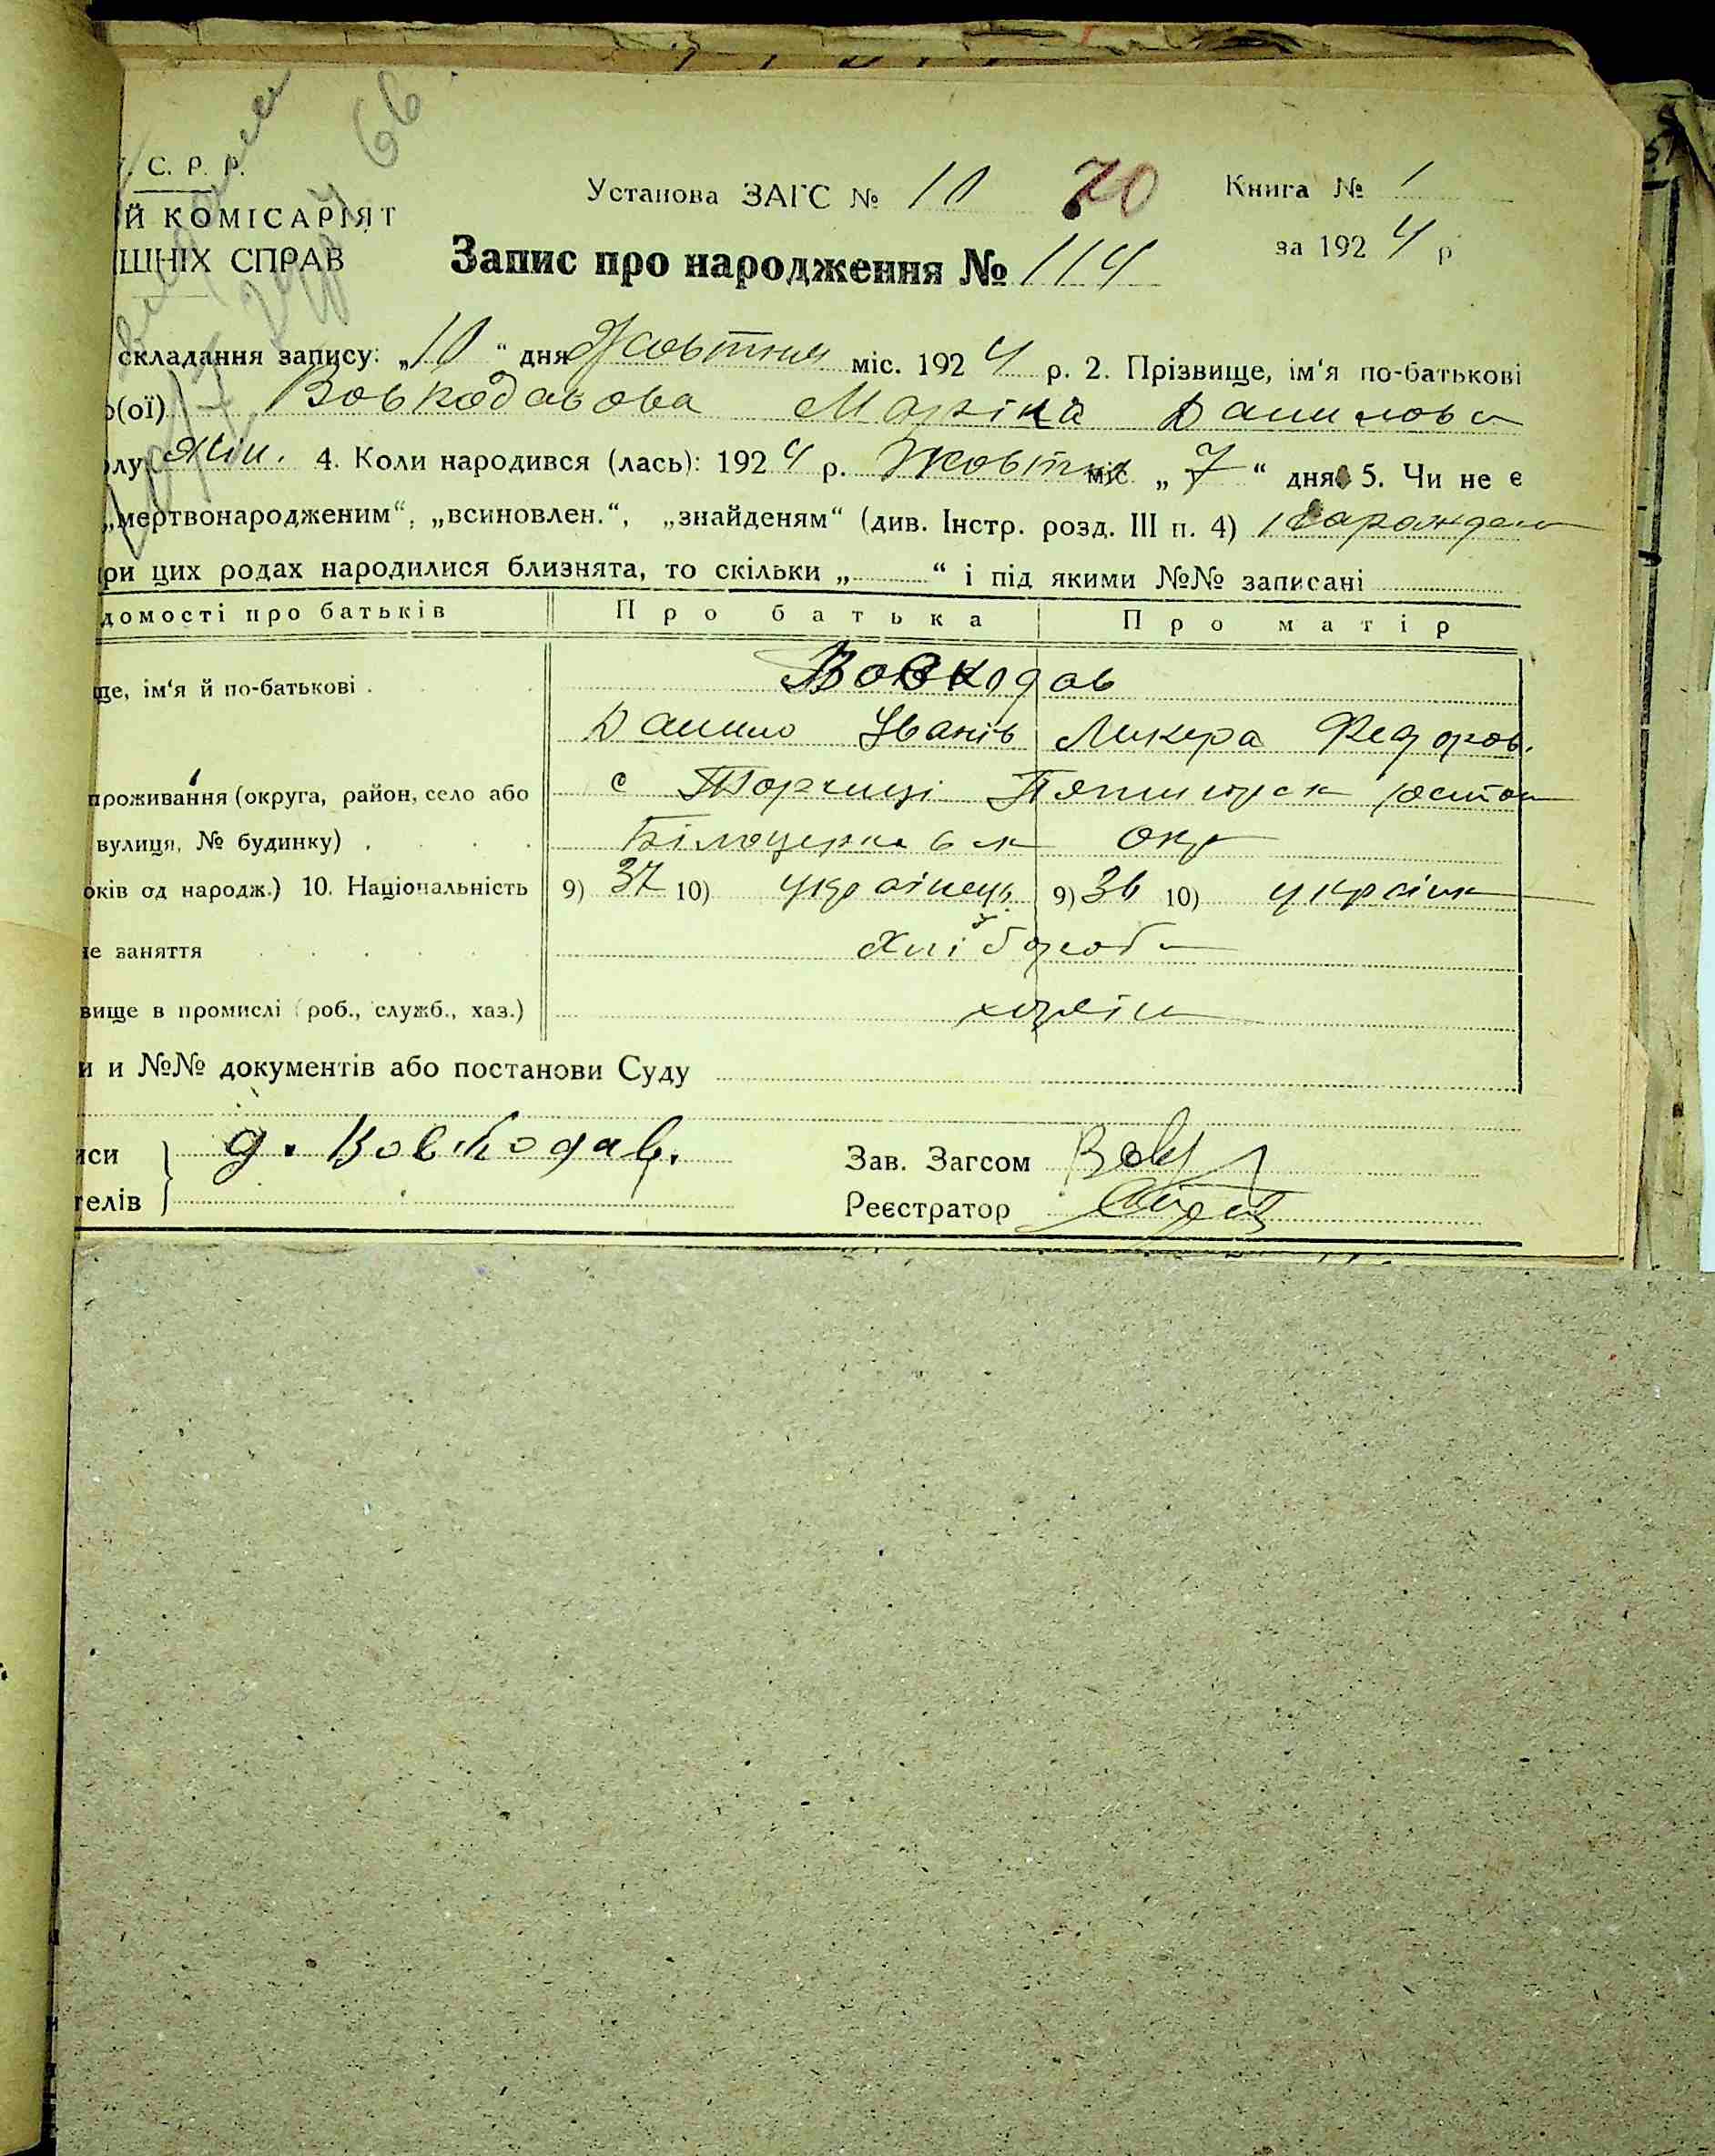 С. Р. Р.
Й КОМІСАРІЯТ
ШНІХ СПРАВ
66
Установа ЗАГС № 10 70 Книга № 1
за 1924 р
Запис про народження № 114
складання запису: „10“ дня Жовтня міс. 1924 р. 2. Прізвище, ім'я по-батькові
о(ої) Вовкодавова Марія Данилова
лу Жін. 4. Коли народився (лась): 1924 р. Жовтня міс. „7“ дня 5. Чи не є
„мертвонародженим“, „всиновлен.“, „знайденям“ (див. Інстр. розд. III п. 4)
ри цих родах народилися близнята, то скільки „ “ і під якими №№ записані
домості про батьків Про батька Про матір
ще, ім'я й по-батькові . Вовкодав
Данило Іванів Ликера Федоров.
проживання (округа, район, село або с Торчиці
вулиця, № будинку) . Білоцерковск окр
оків од народж.) 10. Національність 9) 37 10) українець 9) 36 10) українк
не заняття Хлібороб
вище в промислі (роб., служб., хаз.) хазяін
и и №№ документів або постанови Суду
иси д. Вовкодав. Зав. Загсом
телів Реєстратор